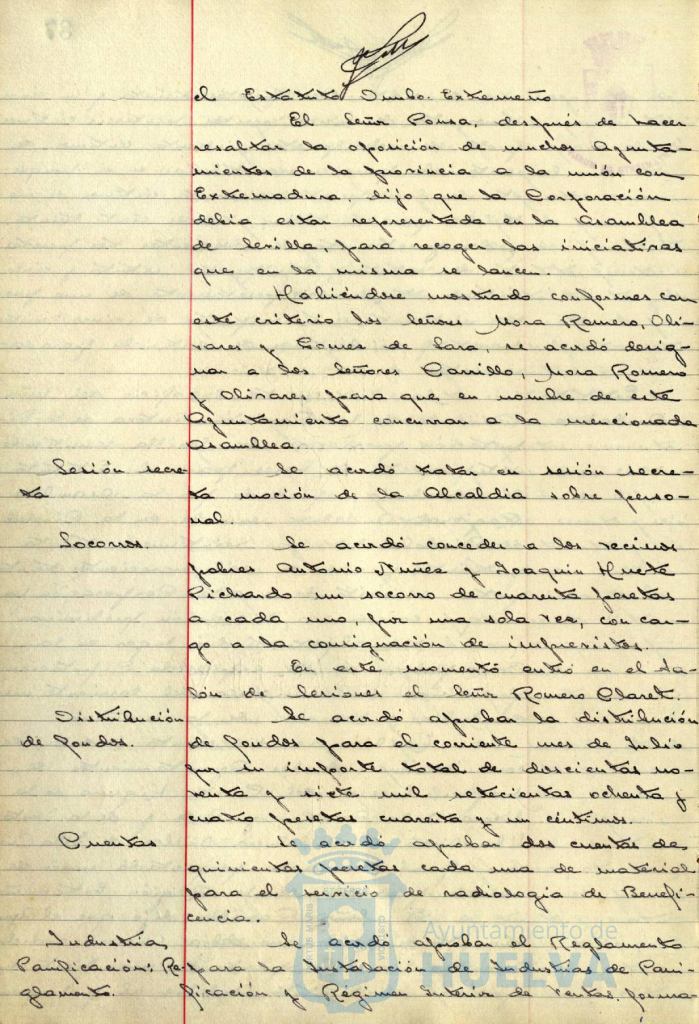 el Estatuto Onubo-Extremeño
El Señor Ponsa, después de hacer
resaltar la oposición de muchos Ayunta-
mientos de la provincia a la unión con
Extremadura, dijo que la Corporación
debía estar representada en la Asamblea
de Sevilla, para recoger las iniciativas
que en la misma se lancen.
Habiéndose mostrado conformes con
este criterio los Señores Mora Romero, Oli-
vares y Gomez de Lara, se acordó desig-
nar a los Señores Carrillo, Mora Romero
y Olivares para que en nombre de este
Ayuntamiento concurran a la mencionada
Asamblea.
Sesión secre-
ta
Se acordó tratar en sesión secre-
ta moción de la Alcaldia sobre perso-
nal.
Socorros.
Se acordó conceder a los vecinos
pobres Antonio Nuñez y Joaquin Huete
Pichardo un socorro de cuarenta pesetas
a cada uno, por una sola vez, con car-
go a la consignación de imprevistos.
En este momento entró en el Sa-
lón de Sesiones el Señor Romero Claret.
Distribución
de fondos.
Se acordó aprobar la distribución
de fondos para el corriente mes de Julio
por su importe total de doscientas no-
venta y siete mil setecientas ochenta y
cuatro pesetas cuarenta y un céntimos.
Cuentas
Se acordó aprobar dos cuentas de
quinientas pesetas cada una de material
para el servicio de radiologia de Benefi-
cencia.
Industrias
Panificación: Re-
glamento.
Se acordó aprobar el Reglamento
para la Instalación de Industrias de Pani-
ficación y Régimen Interior de Ventas, forma-
Ayuntamiento de
HUELVA